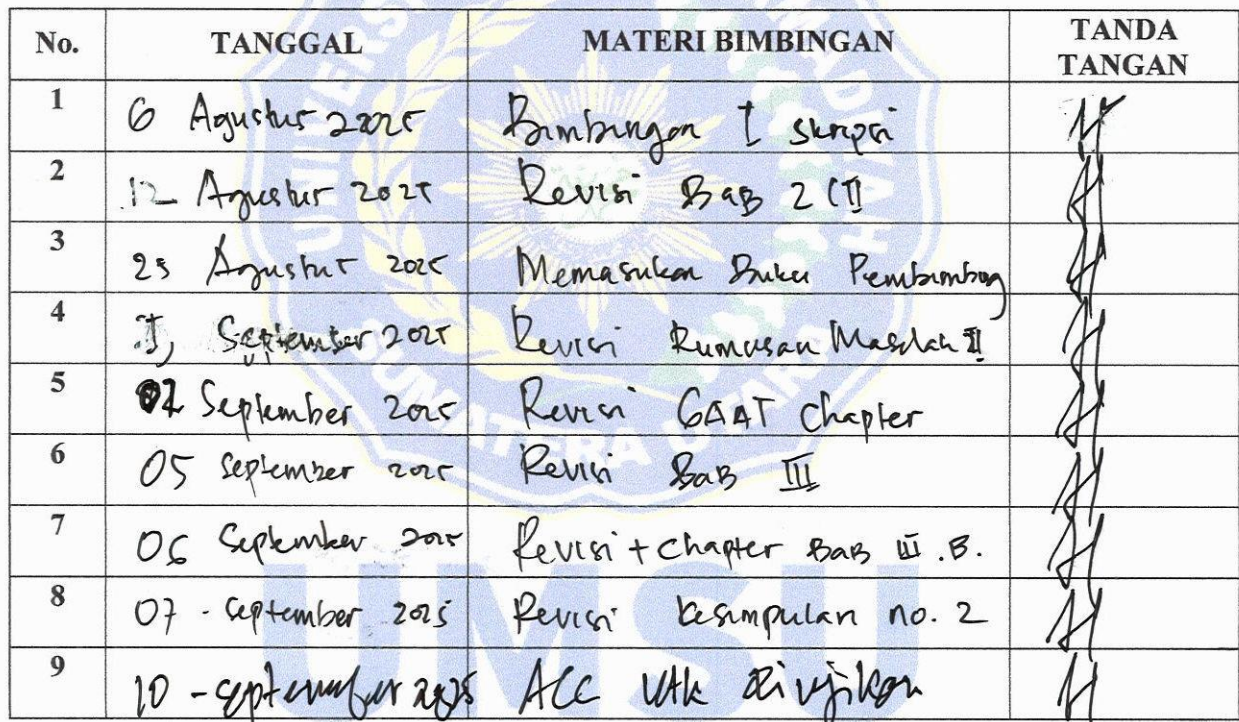 No. TANGGAL MATERI BIMBINGAN TANDA TANGAN
1 6 Agustus 2025 Bimbingan I skripsi
2 12 Agustus 2025 Revisi Bab 2 (II
3 25 Agustus 2025 Memasukan Buku Pembimbing
4 September 2025 Revisi Rumusan Masalah II
5 02 September 2025 Revisi chapter
6 05 September 2025 Revisi Bab III
7 06 September 2025 Revisi + Chapter Bab III .B.
8 07 - September 2025 Revisi kesimpulan no. 2
9 10 - September 2025 ACC utk diujikan
SUMATERA UTARA
UMSU